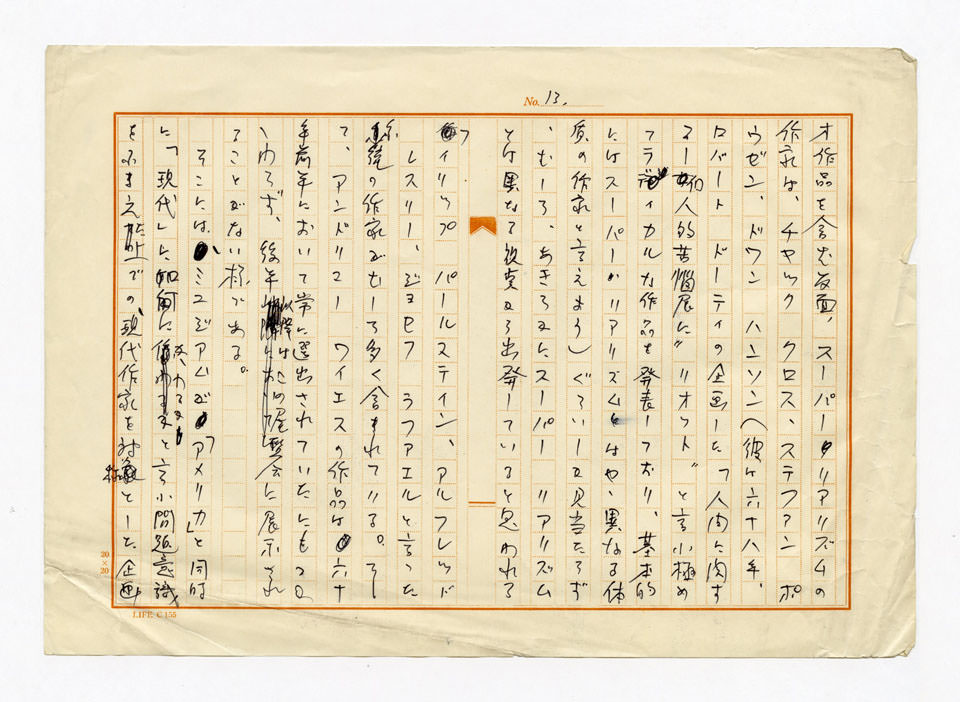 No. 13.
オ作品を含む反面、スーパーリアリズムの
作家は、チャック クロス、ステファン ポ
ウゼン、ドワン ハンソン(彼は六十八年、
ロバート ドーティの企画した「人間に関す
る－個人的苦悩展に"リオット"と言う極め
てラディカルな作品を発表しており、基本的
にはスーパーリアリズムとはや、異なる体
質の作家と言えよう)ぐらいしか見当たらず
、むしろ、あきらかにスーパー リアリズム
とは異なる視点から出発していると思われる
フィリップ パールスティン、アルフレッド
レスリー、ジョセフ ラファエルと言った
系統の作家がむしろ多く含まれている。そし
て、アンドリュー ワイエスの作品は六十
年前半において常に選出されていたにもかか
ゝわらず、後年以降はこの展覧会に展示され
ることがない様である。
そこには、ミュジアムが「アメリカ」と同時
に「現代」に如何に係わるかと言う問題意識
をふまえた上での、現代作家を対象とした企画
20×20
LIFE C 155